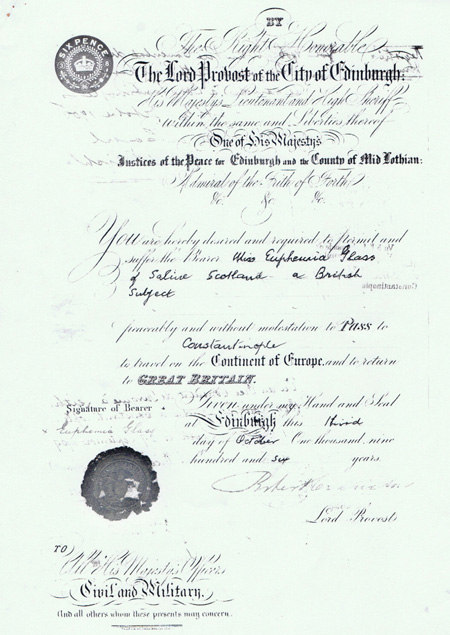 SIX PENCE
BY
The Right Honorable
The Lord Provost of the City of Edinburgh,
His Majesty's Lieutenant and High Sheriff
within the same and Liberties thereof
One of His Majesty's
Justices of the Peace for Edinburgh and the County of Mid Lothian:
Admiral of the Frith of Forth
&c &c &c
You are hereby desired and required to permit and
suffer the Bearer Miss Euphemia Glass
of Saline Scotland a British
Subject
peaceably and without molestation to Pass to
Constantinople
to travel on the Continent of Europe, and to return
to GREAT BRITAIN.
Signature of Bearer
Euphemia Glass
Given under my Hand and Seal
at Edinburgh this third
day of October One thousand nine
hundred and six years.
Lord Provost
TO
All His Majesty's Officers
Civil and Military,
And all others whom these presents may concern.
Constantinople